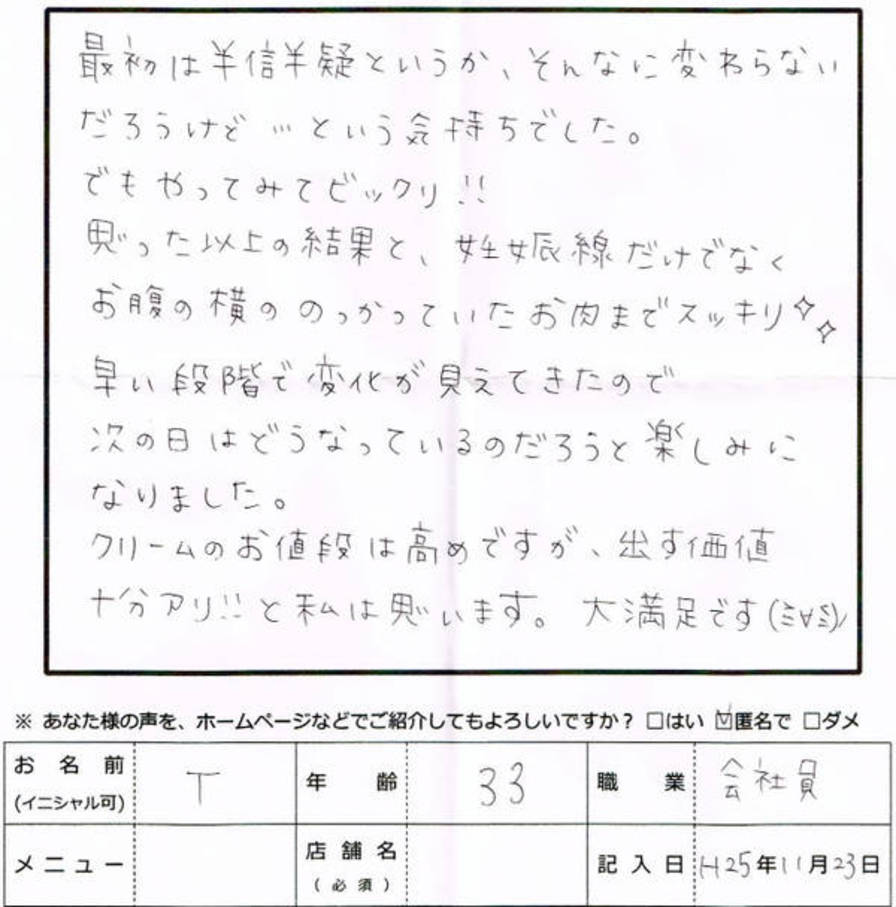 最初は半信半疑というか、そんなに変わらない
だろうけど…という気持ちでした。
でもやってみてビックリ!!
思った以上の結果と、妊娠線だけでなく
お腹の横ののっかっていたお肉までスッキリ✧✧
早い段階で変化が見えてきたので
次の日はどうなっているのだろうと楽しみに
なりました。
クリームのお値段は高めですが、出す価値
十分アリ!!と私は思います。大満足です(≧∀≦)ノ
※ あなた様の声を、ホームページなどでご紹介してもよろしいですか？ □はい ☑匿名で □ダメ
お名前 (イニシャル可) T 年齢 33 職業 会社員
メニュー 店舗名 (必須) 記入日 H25年11月23日